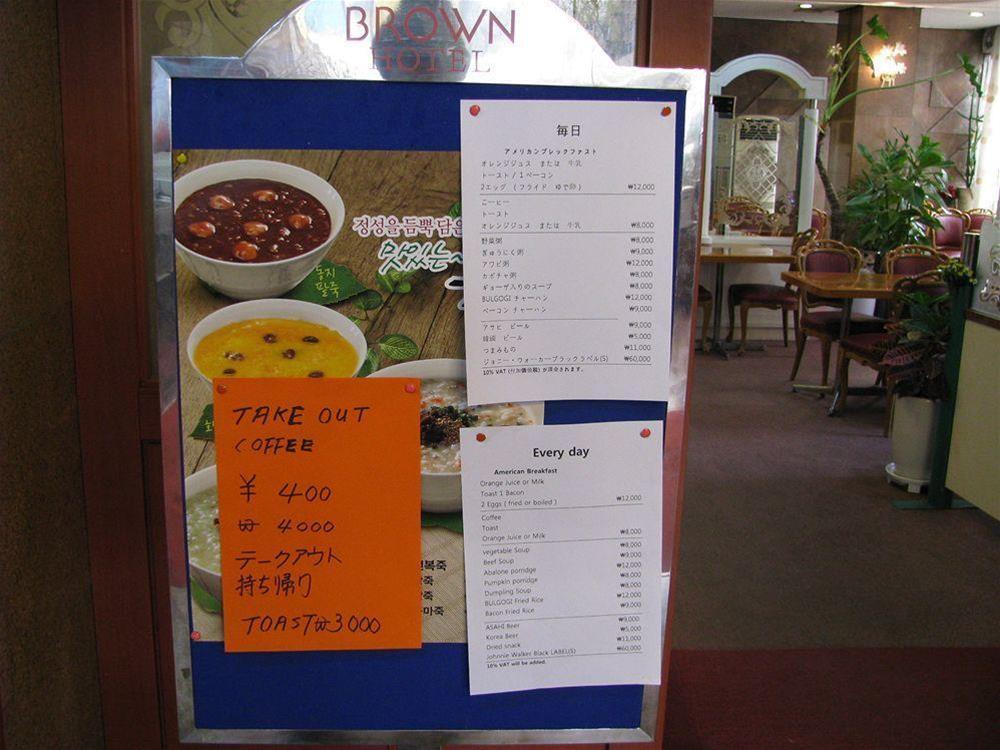 BROWN
HOTEL
정성을 듬뿍 담은
맛있는
동지
팥죽
毎日
アメリカンブレックファスト
オレンジジュス または 牛乳
トースト / 1 ベーコン
2エッグ ( フライド ゆで卵 ) ₩12,000
こーヒー
トースト
オレンジジュス または 牛乳 ₩8,000
野菜粥 ₩8,000
ぎゅうにく粥 ₩9,000
アワビ粥 ₩12,000
カボチャ粥 ₩8,000
ギョーザ入りのスープ ₩8,000
BULGOGI チャーハン ₩12,000
ベーコン チャーハン ₩9,000
アサヒ ビール ₩9,000
韓国 ビール ₩5,000
つまみもの ₩11,000
ジョニー・ウォーカーブラックラベル(S) ₩60,000
10% VAT (付加価値税) が
TAKE OUT
COFFEE
¥ 400
₩ 4000
テークアウト
持ち帰り
TOAST ₩3000
복죽
죽
죽
마죽
Every day
American Breakfast
Orange Juice or Milk
Toast 1 Bacon
2 Eggs ( fried or boiled ) ₩12,000
Coffee
Toast
Orange Juice or Milk ₩8,000
vegetable Soup ₩8,000
Beef Soup ₩9,000
Abalone porridge ₩12,000
Pumpkin porridge ₩8,000
Dumpling Soup ₩8,000
BULGOGI Fried Rice ₩12,000
Bacon Fried Rice ₩9,000
ASAHI Beer ₩9,000
Korea Beer ₩5,000
Dried snack ₩11,000
Johnnie Walker Black LABEL(S) ₩60,000
10% VAT will be added.